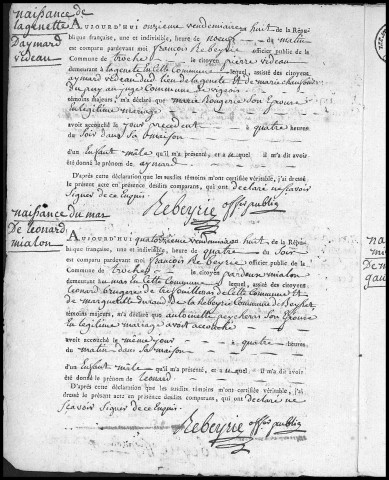 naissance de
lagenette
d'aymard
videau
AUJOURD'HUI onzieme vendemiaire huit de la Répu-
blique française, une et indivisible, heure de noeuf du matin
est comparu pardevant moi françois Rebeyrie officier public de la
Commune de troche le citoyen pierre videau
demeurant a lagenete cette Commune lequel, assisté des citoyens
aymard videau du lieu de lageneste et de marie
du puy Commune de vigeois
témoins majeurs, m'a déclaré que marie Bougerie Son Epouse
en legitime mariage
avoit accouché le jour precedent à quatre heures
du Soir dans Sa maison
d'un Enfant mâle qu'il m'a présenté, et auquel il m'a dit avoir
été donné le prénom de aymard
D'après cette déclaration que les susdits témoins m'ont certifiée véritable, j'ai
dressé le présent acte en présence desdits comparans, qui ont declaré ne Savoir
Signer de ce Enquis
Rebeyrie offier public
naissance du mas
De leonard
mialon
AUJOURD'HUI quatorzieme vendemiaire huit, de la Répu-
blique française, une et indivisible, heure de quatre du Soir
est comparu pardevant moi françois Rebeyrie officier public de la
Commune de troche le citoyen pardoux mialon
demeurant au mas en cette Commune lequel, assisté des citoyens
leonard de cette Commune et
de marguerite durand De la Rebeyrie Commune de
témoins majeurs, m'a déclaré que antoinette peycherie Son Epouse
en legitime mariage avoit accouché
avoit accouché le même jour à quatre heures
du matin dans Sa maison
d'un Enfant mâle qu'il m'a présenté, et auquel il m'a dit avoir
été donné le prénom de leonard
D'après cette déclaration que les susdits témoins m'ont certifiée véritable, j'ai
dressé le présent acte en présence desdits comparans, qui ont declaré ne
Scavoir Signer de ce Enquis
Rebeyrie offier public